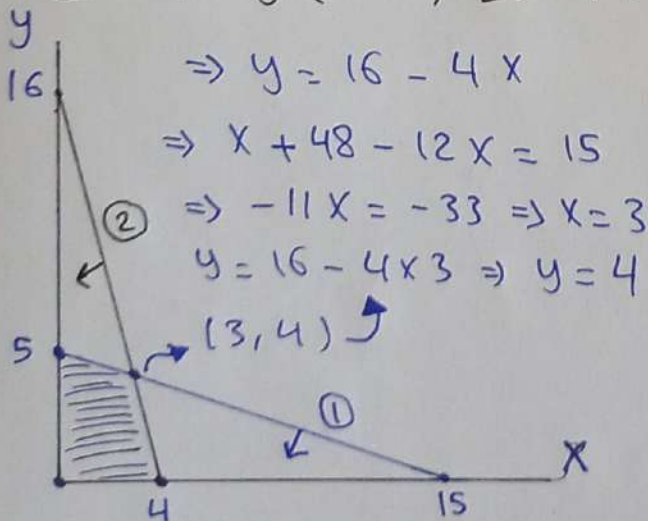 y
16
=> y = 16 - 4x
=> x + 48 - 12x = 15
=> -11x = -33 => x = 3
②
y = 16 - 4×3 => y = 4
5
(3, 4)
①
X
4
15